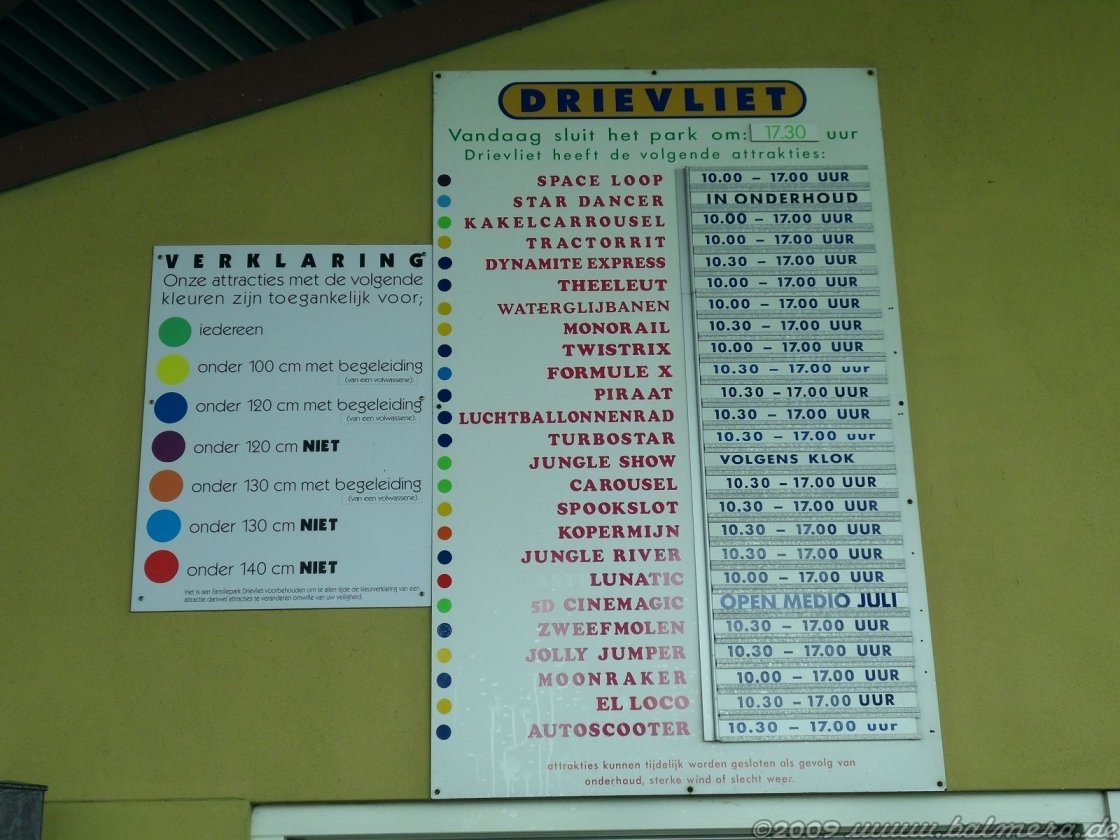 DRIEVLIET
Vandaag sluit het park om: 17.30 uur
Drievliet heeft de volgende attrakties:
SPACE LOOP 10.00 – 17.00 UUR
STAR DANCER IN ONDERHOUD
KAKELCARROUSEL 10.00 – 17.00 UUR
TRACTORRIT 10.00 – 17.00 UUR
DYNAMITE EXPRESS 10.30 – 17.00 UUR
THEELEUT 10.00 – 17.00 UUR
WATERGLIJBANEN 10.00 – 17.00 UUR
MONORAIL 10.30 – 17.00 UUR
TWISTRIX 10.00 – 17.00 UUR
FORMULE X 10.30 – 17.00 uur
PIRAAT 10.30 – 17.00 UUR
LUCHTBALLONNENRAD 10.30 – 17.00 UUR
TURBOSTAR 10.30 – 17.00 uur
JUNGLE SHOW VOLGENS KLOK
CAROUSEL 10.30 – 17.00 UUR
SPOOKSLOT 10.30 – 17.00 UUR
KOPERMIJN 10.30 – 17.00 UUR
JUNGLE RIVER 10.30 – 17.00 UUR
LUNATIC 10.00 – 17.00 UUR
5D CINEMAGIC OPEN MEDIO JULI
ZWEEFMOLEN 10.30 – 17.00 UUR
JOLLY JUMPER 10.30 – 17.00 UUR
MOONRAKER 10.00 – 17.00 UUR
EL LOCO 10.30 – 17.00 UUR
AUTOSCOOTER 10.30 – 17.00 uur
attrakties kunnen tijdelijk worden gesloten als gevolg van
onderhoud, sterke wind of slecht weer.
VERKLARING
Onze attracties met de volgende
kleuren zijn toegankelijk voor;
iedereen
onder 100 cm met begeleiding
(van een volwassene).
onder 120 cm met begeleiding
(van een volwassene).
onder 120 cm NIET
onder 130 cm met begeleiding
(van een volwassene).
onder 130 cm NIET
onder 140 cm NIET
Het is aan Familiepark Drievliet voorbehouden om te allen tijde de kleurverklaring van een
attractie danwel attracties te veranderen omwille van uw veiligheid.
©2009 www.balmera.de